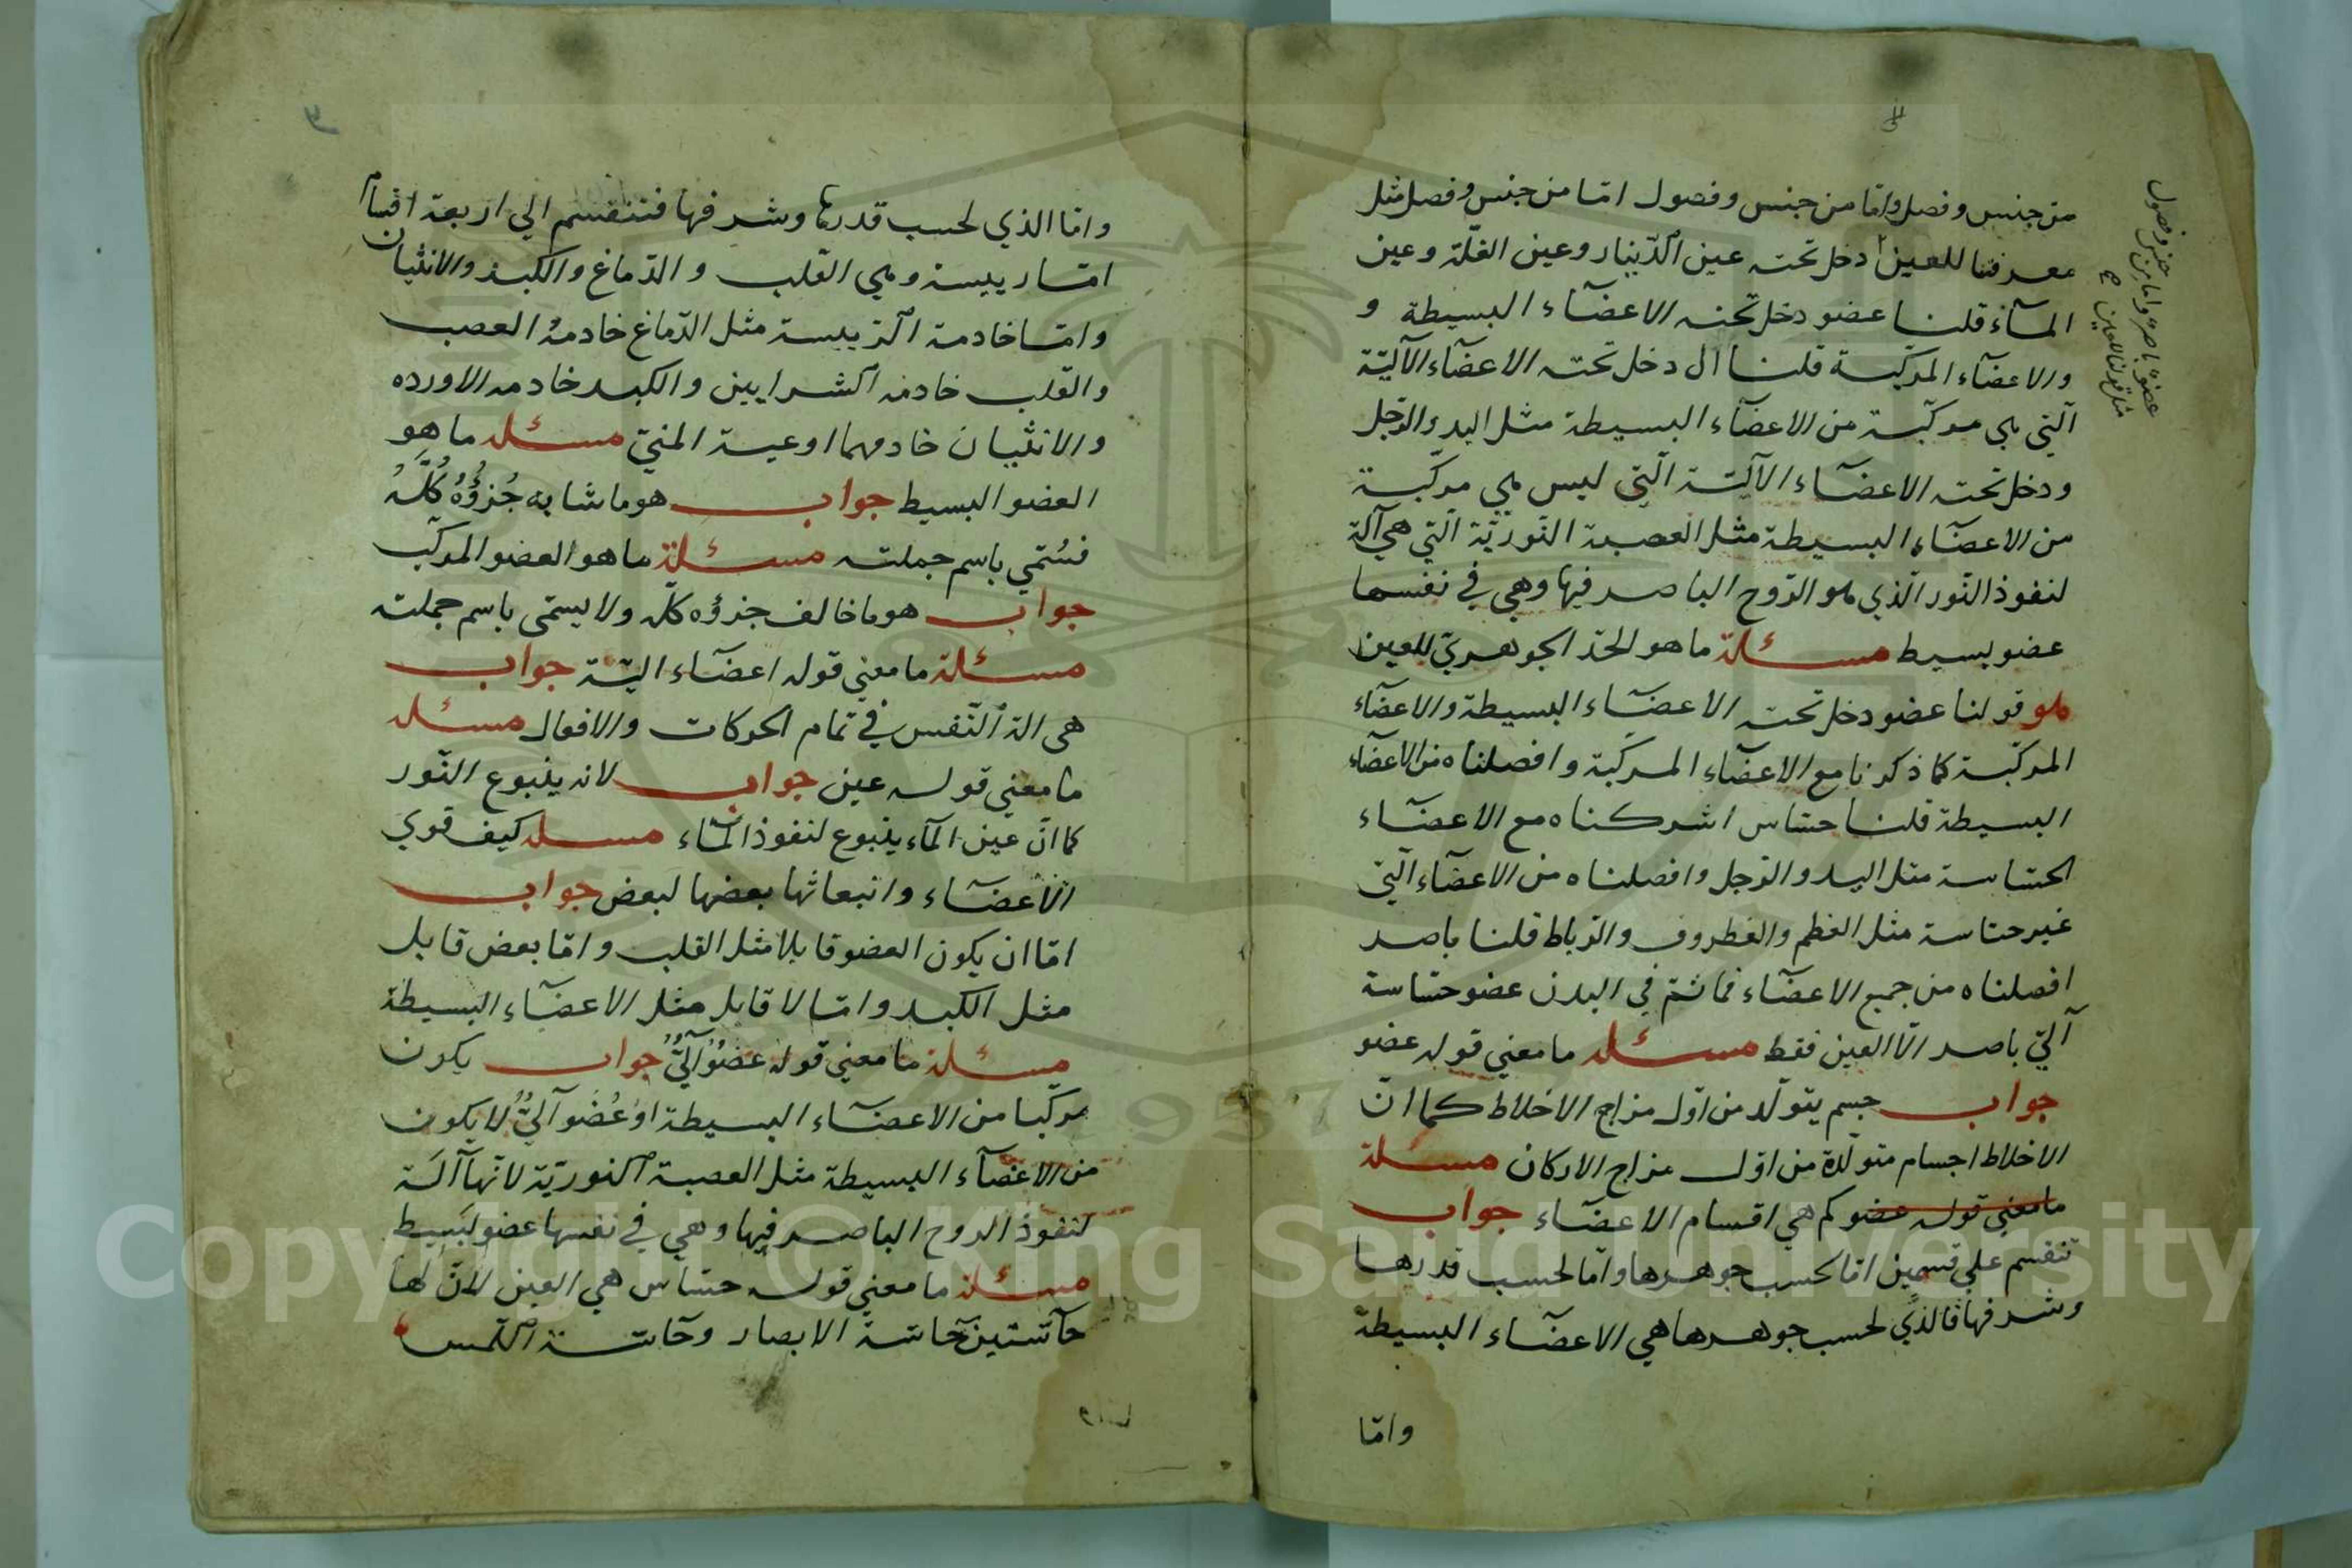 من جنس وفصل واما من جنس وفصول امّا من جنس وفصل مثل
معرفتنا للعين دخل تحته عين الدّينار وعين القلّة وعين
المآء قلنا عضو دخل تحته الاعضآء البسيطة و
والاعضآء المركبة قلنا الى دخل تحته الاعضآء الآليّة
الّتي هي مركّبة من الاعضآء البسيطة مثل اليد والرّجل
ودخل تحته الاعضآء الآليّة الّتي ليس هي مركّبة
من الاعضآء البسيطة مثل العصبة النّوريّة الّتي هي آلة
لنفوذ النّور الّذي هو الرّوح الباصر فيها وهي في نفسها
عضو بسيط مسئلة ما هو الحدّ الجوهريّ للعين
هو قولنا عضو دخل تحته الاعضآء البسيطة والاعضآء
المركّبة كما ذكرنا مع الاعضآء المركبة وافصلناه من الاعضآء
البسيطة قلنا حسّاس اشركناه مع الاعضآء
الحسّاسة مثل اليد والرّجل وافصلناه من الاعضآء الّتي
غير حسّاسة مثل العظم والغطروف والرّباط قلنا باصر
افصلناه من جميع الاعضآء فما ثمّ في البدن عضو حسّاسة
آليّ باصر الّا العين فقط مسئله ما معني قوله عضو
جواب جسم يتولّد من اوّل مزاج الاخلاط كما انّ
الاخلاط اجسام متولّدة من اوّل مزاج الاركان مسئلة
ما معني قوله عضو كم هي اقسام الاعضآء جواب
تنقسم علي قسمين امّا لحسب جوهرها وامّا لحسب قدرها
وشرفها فالذي لحسب جوهرها هي الاعضآء البسيطة
وامّا
عضو باصر واما من جنس وفصول
مثل قولنا للعين
وامّا الذي لحسب قدرها وشرفها فتنقسم الي اربعة اقسام
امّا رييسة وهي القلب والدّماغ والكبد والانثيان
وامّا خادمة الرّييسة مثل الدّماغ خادمهُ العصب
والقلب خادمه الشرايين والكبد خادمه الاورده
والانثيان خادمهما اوعية المنيّ مسئله ما هو
العضو البسيط جواب هو ما شابه جُزؤُهُ كُلَّهُ
فسُمّي باسم جملته مسئلة ما هو العضو المركّب
جواب هو ما خالف جزؤه كلّه ولا يسمّى باسم جملته
مسئلة ما معني قوله اعضآء اليّة جواب
هى الة النّفس في تمام الحركات والافعال مسئله
ما معني قوله عين جواب لانه ينبوع النّور
كما انّ عين المآء ينبوع لنفوذ المآء مسله كيف قوي
الأعضآء وانبعاثها بعضها لبعض جواب
امّا ان يكون العضو قابلا مثل القلب وامّا بعض قابل
مثل الكبد وامّا لا قابل مثل الاعضآء البسيطة
مسئلة ما معني قوله عضوٌ آليٌّ جواب يكون
مركّبا من الاعضآء البسيطة او عُضو آليٌّ لا يكون
من الاعضآء البسيطة مثل العصبة النوريّة لانّها آلَة
لنفوذ الروح الباصر فيها وهي في نفسها عضو بَسيط
مسئلة ما معني قوله حسّاس هي العين لانّ لها
حآسّتين حاسّة الابصار وحآسّة اللّمس
Copyright © King Saud University
1957